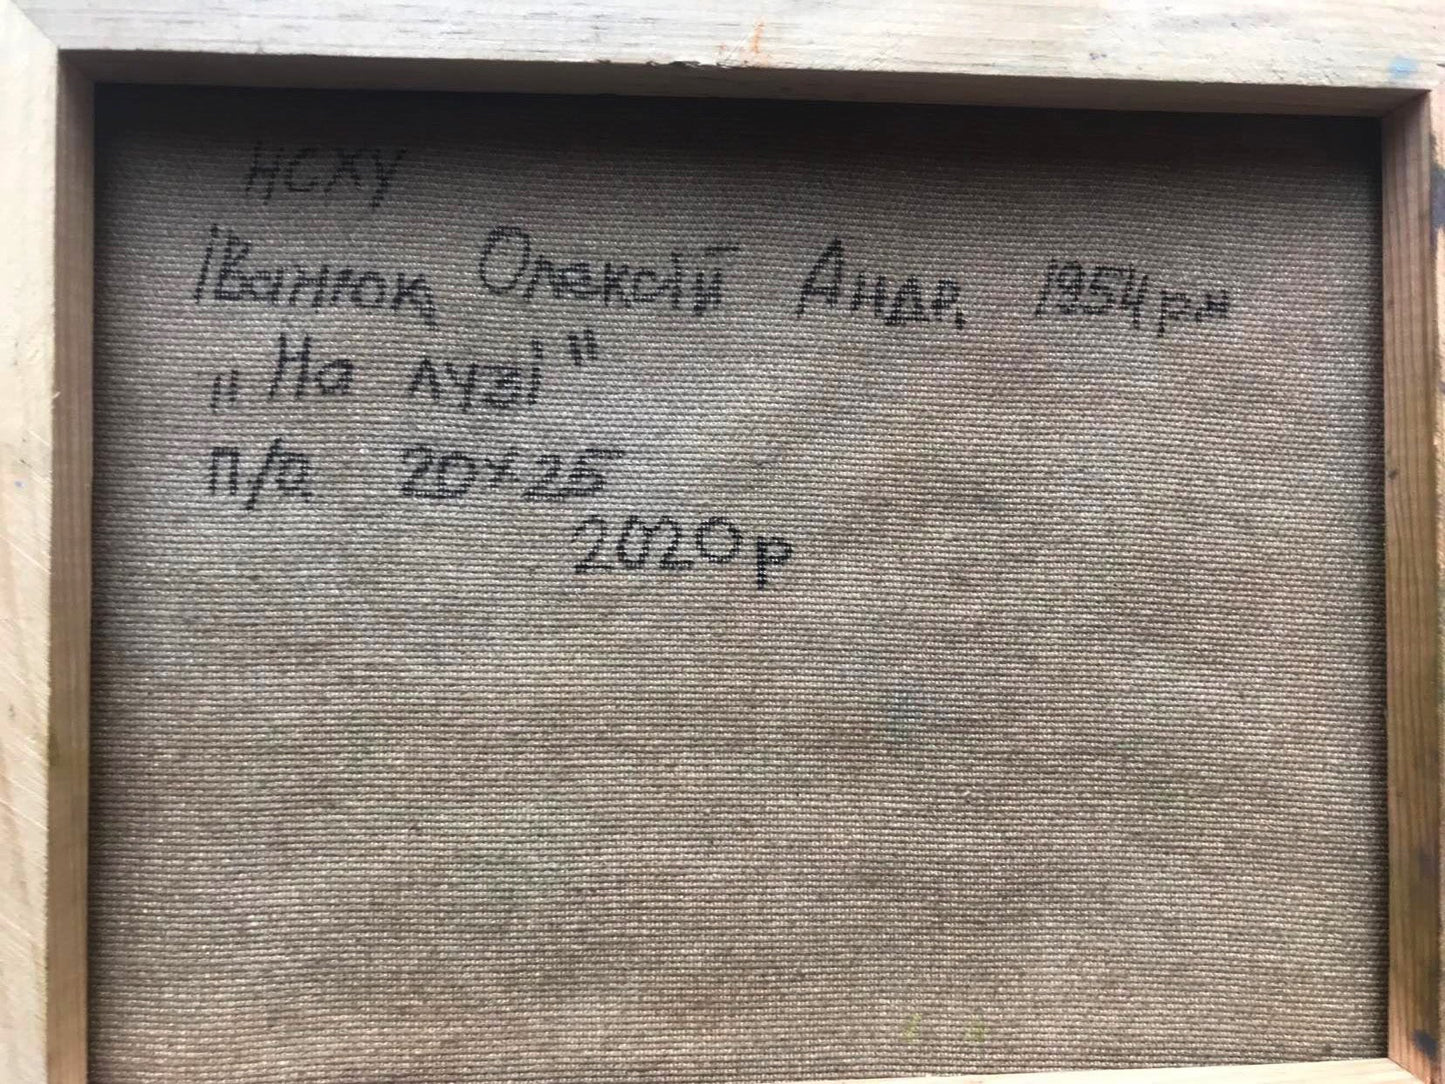 НСХУ
Іванюк Олексій Андр. 1954 р н
„На лузі"
п/о 20х25
2020р